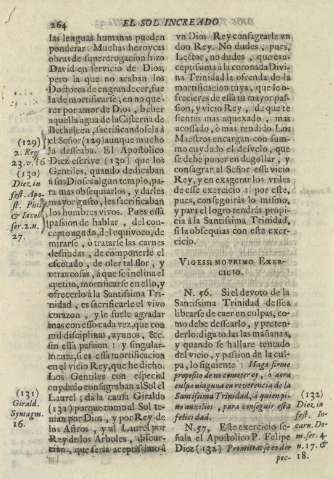 264 EL SOL INCREADO
las lenguas humanas pueden
ponderar. Muchas heroycas
obras de supererogacion hizo
David en servicio de Dios;
pero la que no acaban los
Doctores de engrandecer, fue
la de mortificarse, en no que-
rer por amor de Dios, beber
aquella agua de la Cisterna de
Bethleen, sacrificandosela à
el Señor (129) aunque mucho
la desseaba. El Apostolico
Diez escrive (130) que los
Gentiles, quando dedicaban
à sus Diosès algun templo, pa-
ra mas obsequiarlos, y darles
mayor gusto, les sacrificaban
los hombres vivos. Pues essa
passion de hablar, del
de
mirarse, ò tratarse las carnes
desnudas, de componerle el
escotado, de oler tal flor, y
otras cosas, à que se inclina el
apetito, mortificarse en ello, y
ofrecerlo à la Santissima Tri-
nidad, es sacrificarle el vivo
corazon, y le suele agradar
mas con esso cada vez, que con
mil disciplinas, ayunos, &c.
assi essa passion; y singular-
mente, si es essa mortificacion
en el vicio Rey, que he dicho.
Los Gentiles con especial
cuydado consagraban al Sol el
Laurel; da la causa Giraldo
(131) porque como al Sol te-
nian por Dios, y por Rey de
los Astros, y al Laurel por
Rey de los Arboles, discur-
rian, que seria acepcissimo à
(129)
2. Reg.
23. v. 16
(130)
Diez, in
fest. Apo.
Phil.
& Iacob.
ser. 2. n.
27.
(131)
Girald.
Syntagm.
16.
vn Dios Rey consagrarle vn
don Rey. No dudes, pues,
Lector, no dudes, que sea
acceptissima à la coronada Divi-
na Trinidad la ofrenda de la
mortificacion tuya, que le o-
frecieres de essa tu mayor pas-
sion, y vicio Rey, de que te
sientes mas aquexado, mas
acosado, ò mas tentado. Los
Maestros encargan con sum-
mo cuydado el desvelo, que
se debe poner en degollar, y
consagrar el Señor esse vicio
Rey, y en exagerar los vales
de este exercicio: por este,
pues, conseguiràs lo mismo,
y para el logro tendràs propi-
cia à la Santissima Trinidad,
si la obsequias con este exer-
cicio.
VIGESSIMOPRIMO EXER-
CICIO.
N. 56. Si el devoto de la
Santissima Trinidad dessea
librarse de caer en culpas, co-
mo debe dessearlo, y preten-
derlo: diga todas las mañanas,
y quando se hallare tentado
del vicio, y passion de la cul-
pa, lo siguiente: Hago firme
proposito de no cometer oy, ò aora
culpa ninguna en reverencia de la
Santissima Trinidad, à quien pi-
do auxilios, para conseguir esta
felicidad.
N. 57. Este exercicio se-
ñala el Apostolico P. Felipe
Diez (132)
pec-
(132)
Diez, in
fest. In-
carn. Do-
m. ser. 4.
n. 17. &
18.